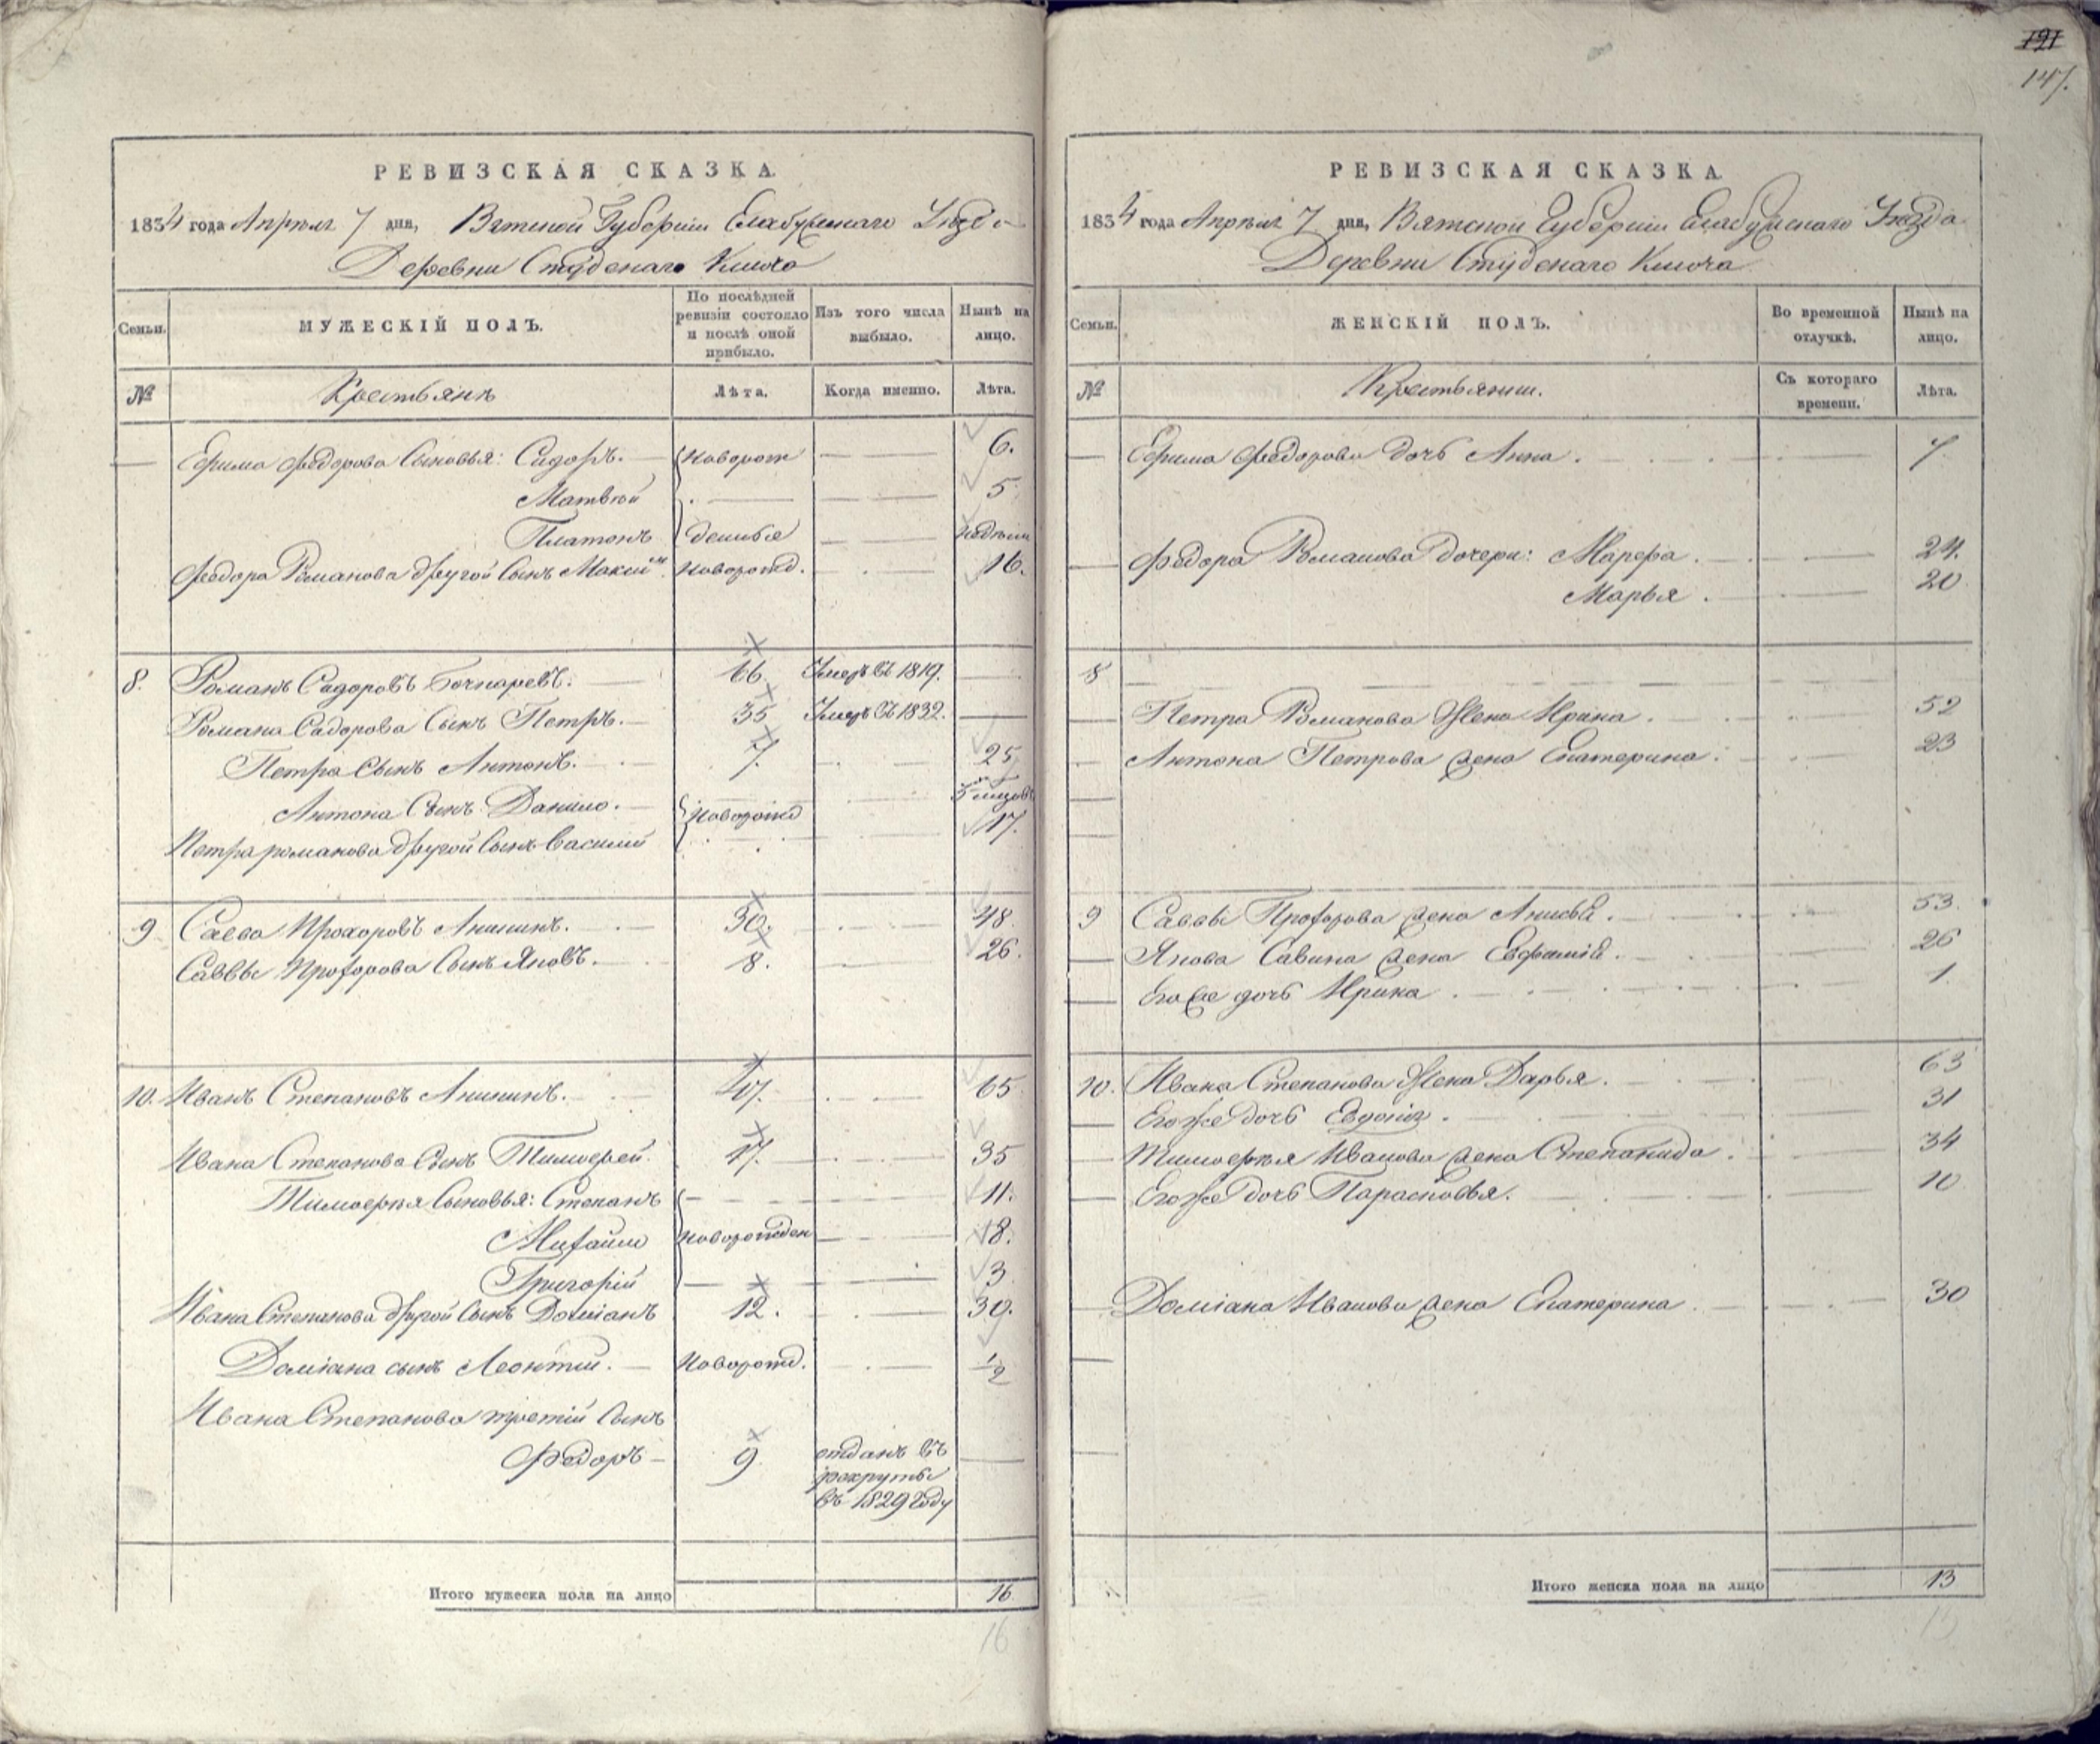 121
147.
РЕВИЗСКАЯ СКАЗКА.
1834 года Апреля 7 дня, Вятской Губернии Елабужскаго Уезда
Деревни Студенаго Ключа
Семьи.
МУЖЕСКІЙ ПОЛЪ.
По послѣдней ревизіи состояло и послѣ оной прибыло.
Изъ того числа выбыло.
Нынѣ на лицо.
№
Крестьянъ
Лѣта.
Когда именно.
Лѣта.
Ефима Федорова Сыновья: Сидоръ. Новорож 6.
Матвей 5.
Платонъ денныя недели
Федора Романова другой Сынъ Максимъ. Новорожд. 16.
8. Романъ Сидоровъ Бочкаревъ. 66. Умеръ въ 1819.
Романа Сидорова Сынъ Петръ. 35 Умеръ въ 1832.
Петра Сынъ Антонъ. 7. 25
Антона Сынъ Данило. Новорожд
Петра романова другой Сынъ Василий 17.
9 Савва Прохоровъ Ананинъ. 30. 48
Саввы Прохорова Сынъ Яковъ. 8. 26.
10. Иванъ Степановъ Ананинъ. 47. 65
Ивана Степанова Сынъ Тимофей. 17. 35
Тимофея Сыновья: Степанъ 11.
Михайло Новорожден 8.
Григорій 3
Ивана Степанова другой Сынъ Доміанъ 12. 30.
Доміана сынъ Леонтий. Новорожд. 1/2
Ивана Степанова третій Сынъ
Федоръ 9 отданъ въ
рекруты
въ 1829 году
Итого мужеска пола на лицо 16
16
РЕВИЗСКАЯ СКАЗКА.
1834 года Апреля 7 дня, Вятской Губернии Елабужскаго Уезда
Деревни Студенаго Ключа
Семьи.
ЖЕНСКІЙ ПОЛЪ.
Во временной отлучкѣ.
Нынѣ на лицо.
№
Крестьянки.
Съ котораго времени.
Лѣта.
Ефима Федорова дочь Анна. 7
Федора Романова дочери: Марфа. 24.
Марья. 20
8
Петра Романова Жена Ирина. 52
Антона Петрова жена Екатерина. 23
9 Саввы Прохорова жена Анисья. 53.
Якова Савина жена Евфимія. 26
Его же дочь Ирина. 1.
10. Ивана Степанова Жена Дарья. 63
Его же дочь 31
Тимофея Иванова жена Степанида. 34
Его же дочь Парасковья. 10
Доміана Иванова жена Екатерина. 30
Итого женска пола на лицо 13
13